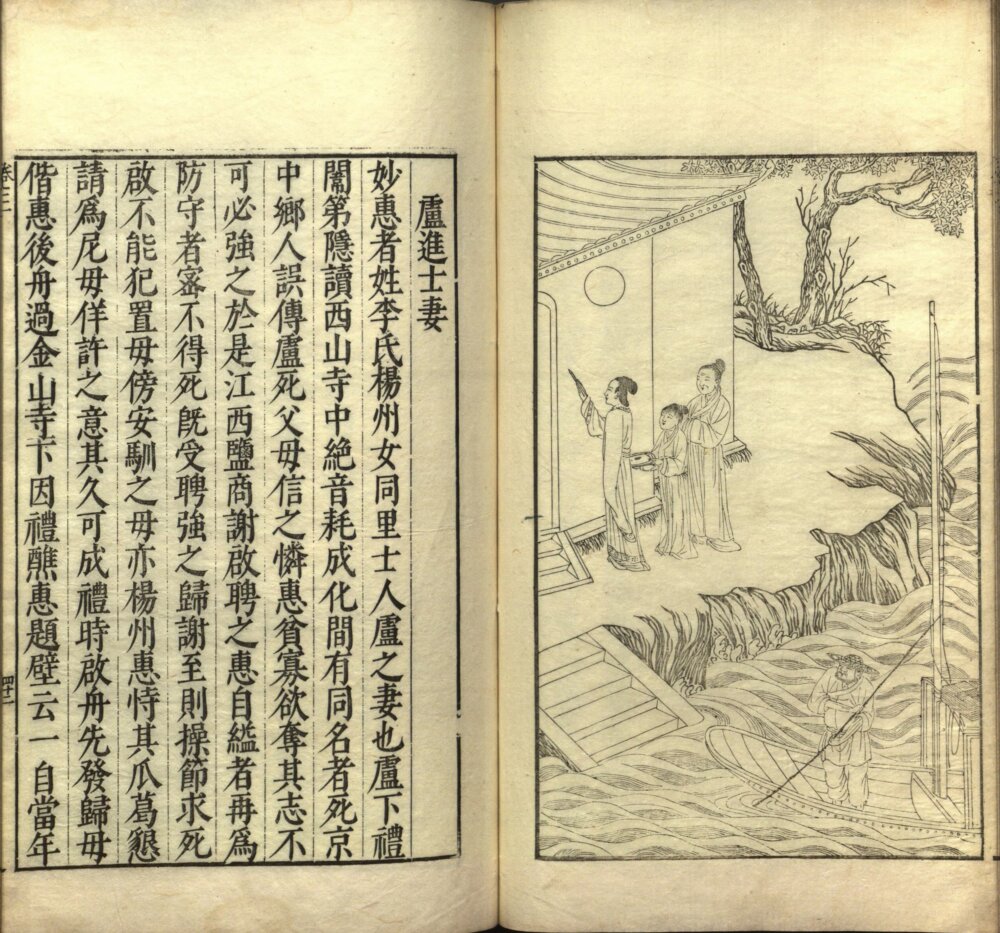 盧進士妻
妙惠者姓李氏楊州女同里士人盧之妻也盧下禮
闈第隱讀西山寺中絶音耗成化間有同名者死京
中鄉人誤傳盧死父母信之憐惠貧寡欲奪其志不
可必強之於是江西鹽商謝啟聘之惠自縊者再爲
防守者密不得死旣受聘強之歸謝至則操節求死
啟不能犯置毋傍安馴之毋亦楊州惠恃其瓜葛懇
請爲尼毋佯許之意其久可成禮時啟舟先發歸毋
偕惠後舟過金山寺下因禮醮惠題壁云一自當年
卷十二
四十二